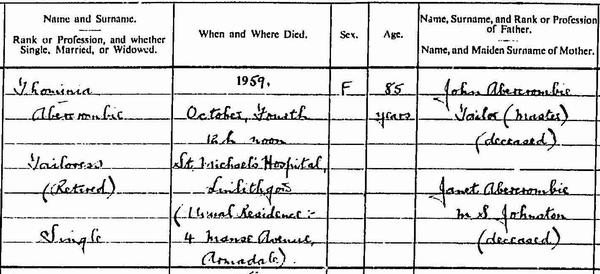 Name and Surname.
Rank or Profession, and whether
Single, Married, or Widowed.
When and Where Died.
Sex.
Age.
Name, Surname, and Rank or Profession
of Father.
Name, and Maiden Surname of Mother.
Thominia
Abercrombie
Tailoress
(Retired)
Single
1959,
October, Fourth
12h noon
St. Michael's Hospital,
Linlithgow
(Usual Residence:-
4 Manse Avenue,
Armadale).
F
85
years
John Abercrombie
Tailor (Master)
(deceased)
Janet Abercrombie
M.S. Johnston
(deceased)